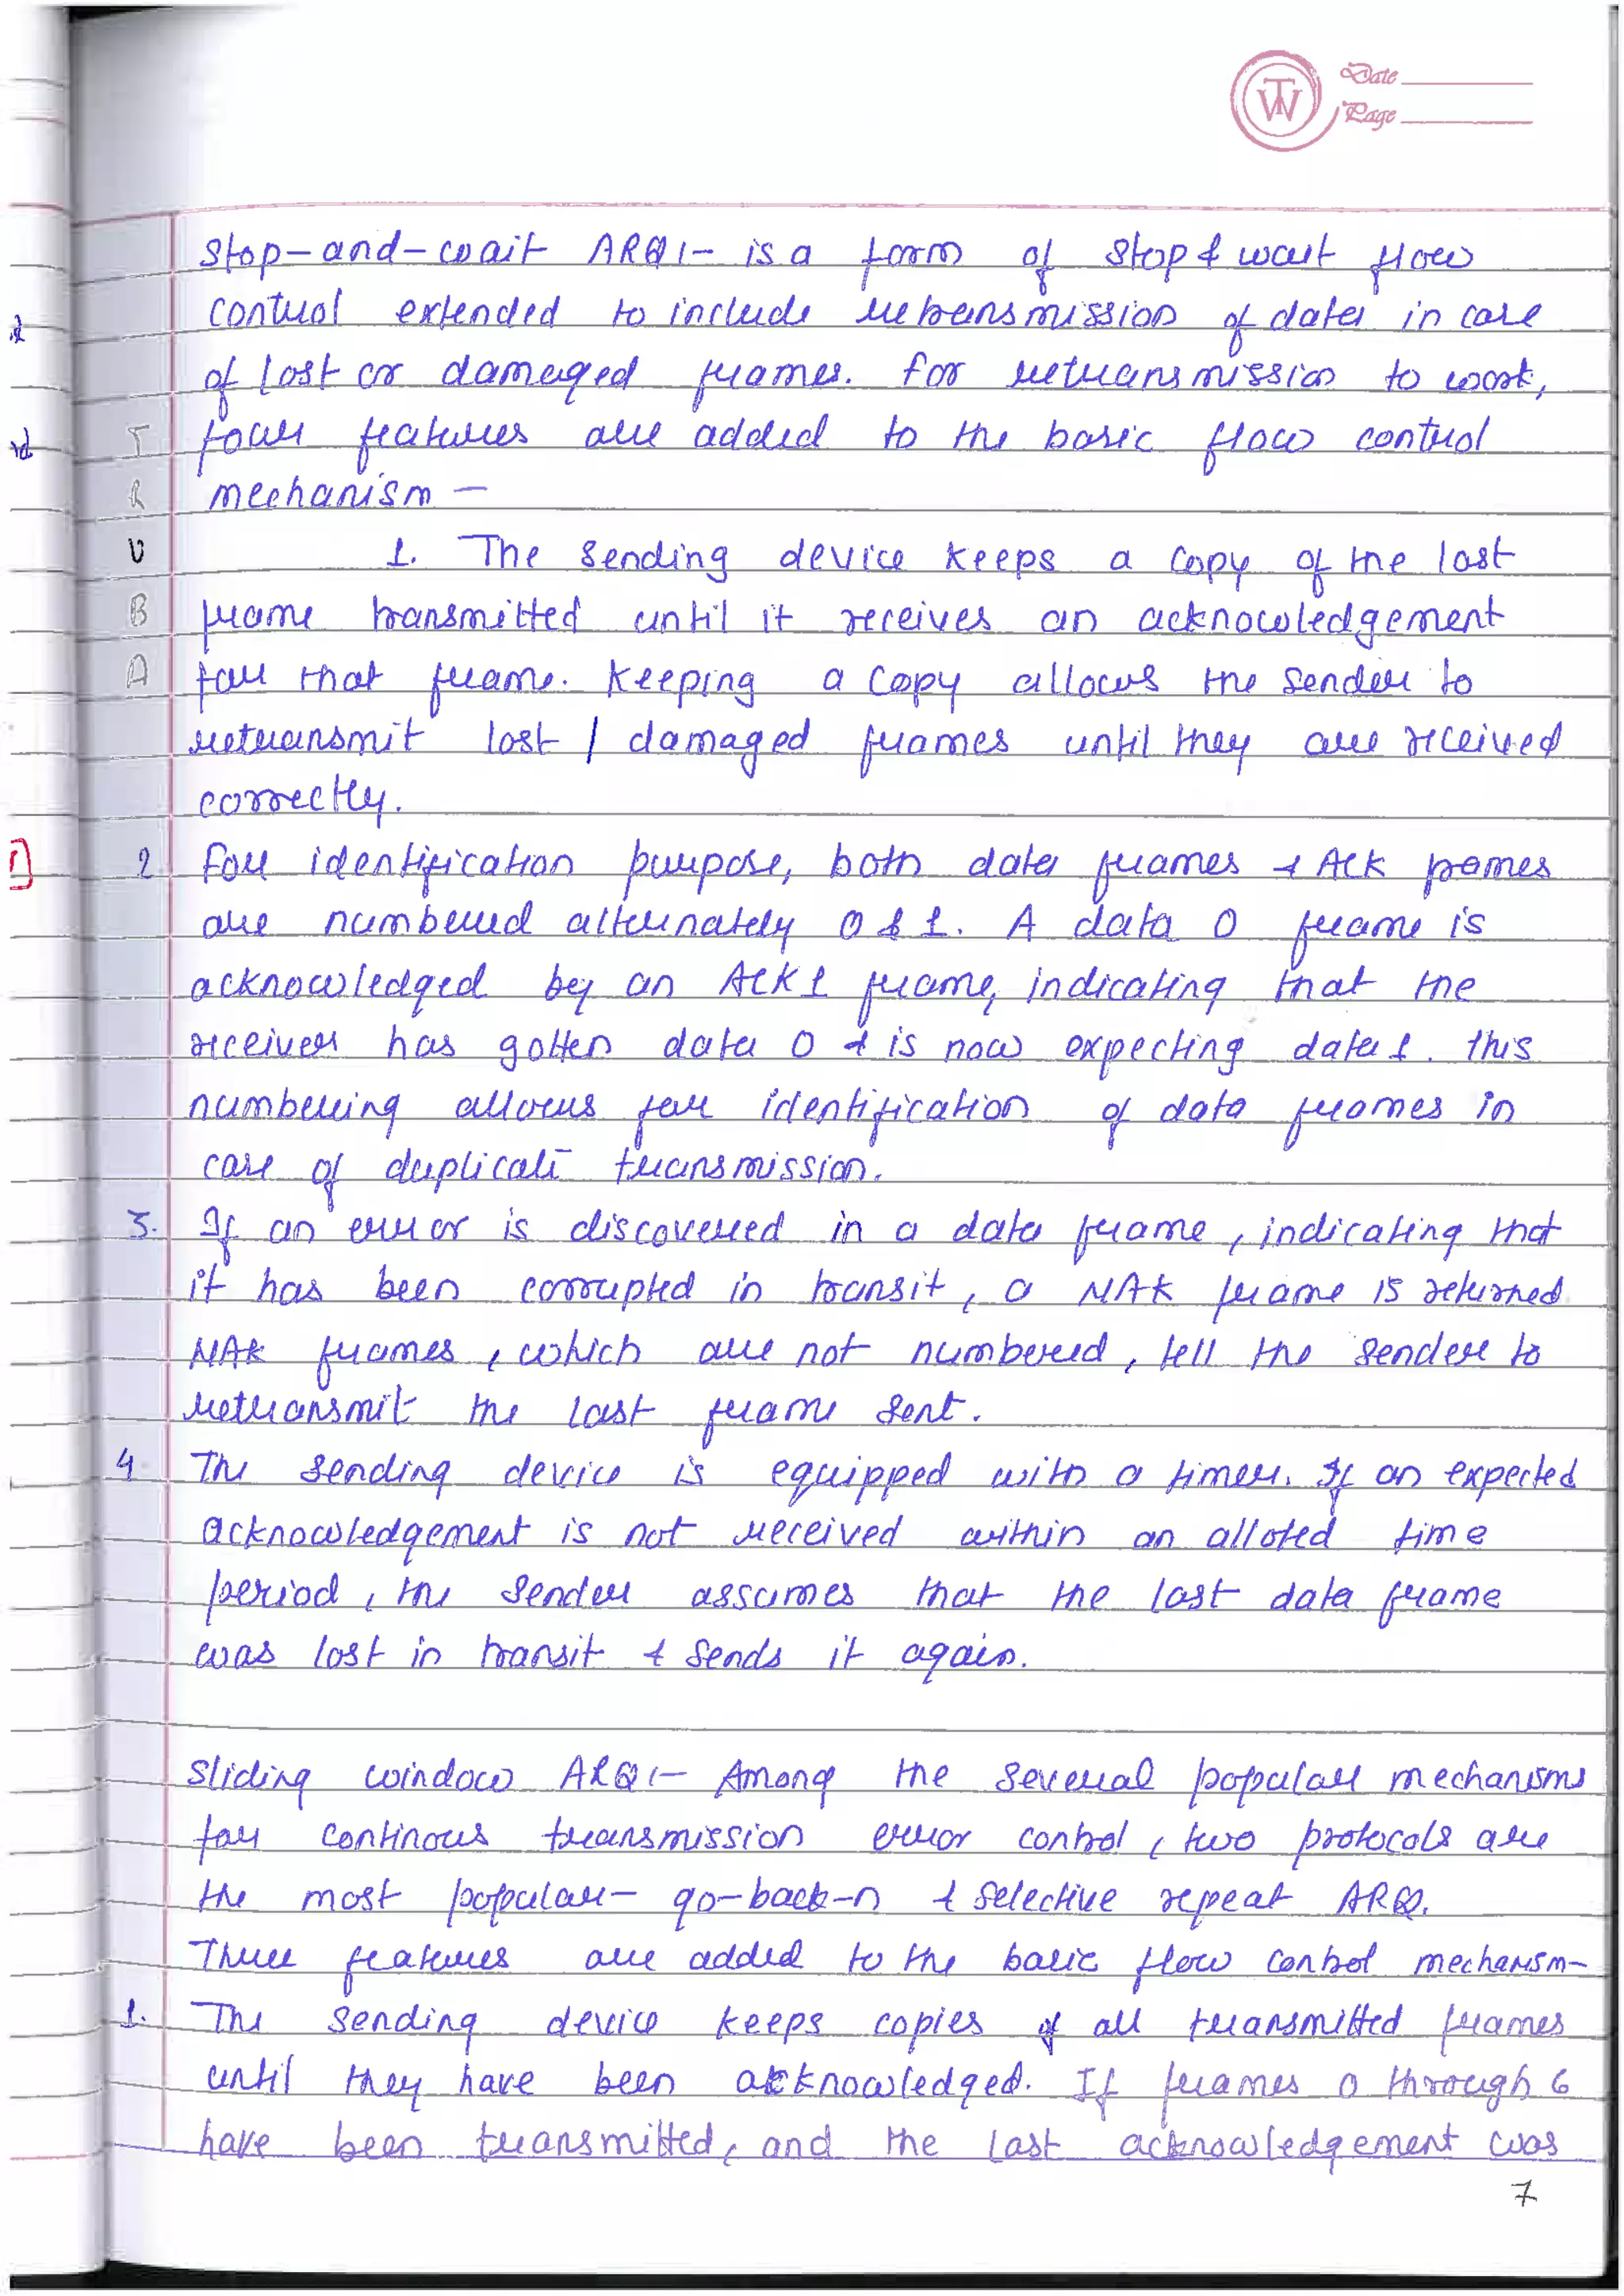 Date
Page
Stop-and-wait ARQ :- is a form of stop & wait flow
control extended to include retransmission of data in case
of lost or damaged frames. For retransmission to work,
four features are added to the basic flow control
mechanism -
1. The sending device keeps a copy of the last
frame transmitted until it receives an acknowledgement
for that frame. Keeping a copy allows the sender to
retransmit lost / damaged frames until they are received
correctly.
2 For identification purpose, both data frames & ACK frames
are numbered alternately 0 & 1. A data 0 frame is
acknowledged by an ACK 1 frame, indicating that the
receiver has gotten data 0 & is now expecting data 1. this
numbering allows for identification of data frames in
case of duplicate transmission.
3. If an error is discovered in a data frame, indicating that
it has been corrupted in transit, a NAK frame is returned.
NAK frames, which are not numbered, tell the sender to
retransmit the last frame sent.
4. The sending device is equipped with a timer. If an expected
acknowledgement is not received within an alloted time
period, the sender assumes that the last data frame
was lost in transit & sends it again.
Sliding window ARQ :- Among the several popular mechanisms
for continous transmission error control, two protocols are
the most popular - go-back-n & selective repeat ARQ.
Three features are added to the basic flow control mechanism-
1. The sending device keeps copies of all transmitted frames
until they have been acknowledged. If frames 0 through 6
have been transmitted, and the last acknowledgement was
7
T
R
U
B
A